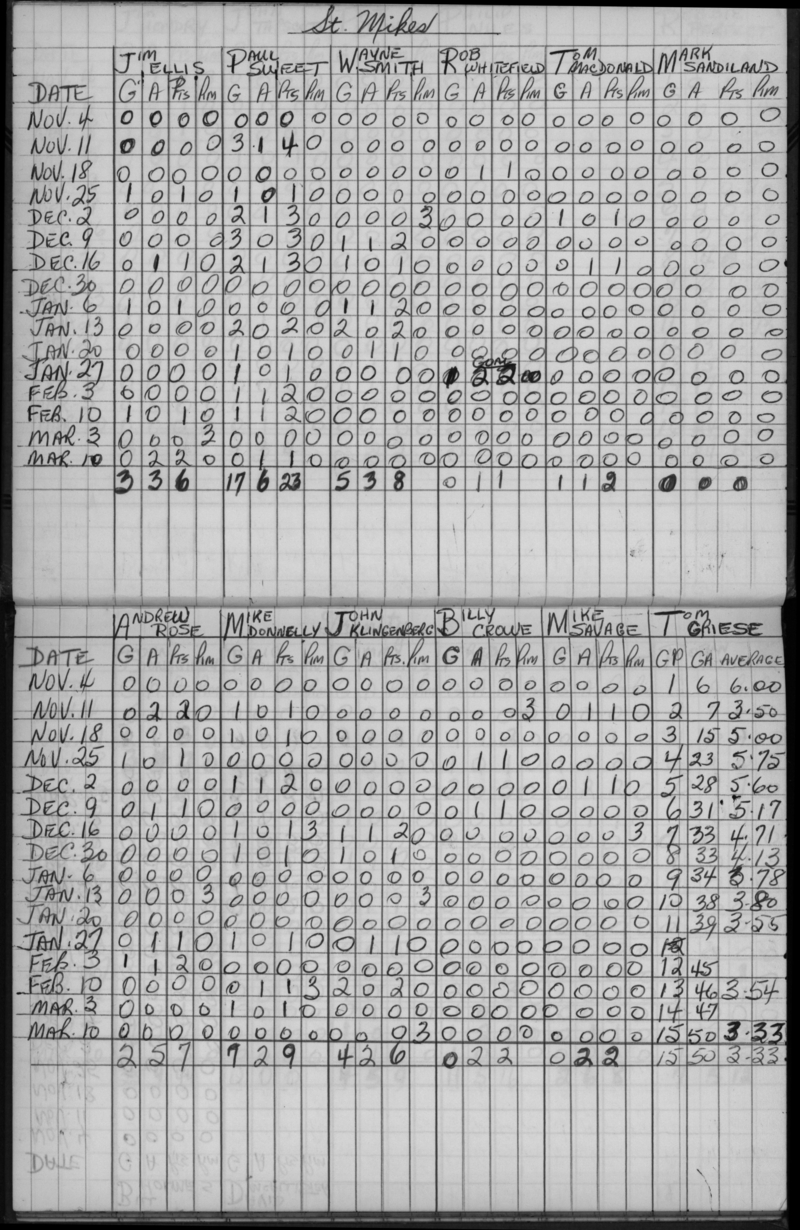 St. Mikes
JIM ELLIS PAUL SWEET WAYNE SMITH ROB WHITEFIELD TOM MACDONALD MARK SANDILAND
DATE G A Pts Pim G A Pts Pim G A Pts Pim G A Pts Pim G A Pts Pim G A Pts Pim
NOV. 4 0 0 0 0 0 0 0 0 0 0 0 0 0 0 0 0 0 0 0 0 0 0 0 0
NOV. 11 0 0 0 0 3 1 4 0 0 0 0 0 0 0 0 0 0 0 0 0 0 0 0 0
NOV. 18 0 0 0 0 0 0 0 0 0 0 0 0 0 1 1 0 0 0 0 0 0 0 0 0
NOV. 25 1 0 1 0 1 0 1 0 0 0 0 0 0 0 0 0 0 0 0 0 0 0 0 0
DEC. 2 0 0 0 0 2 1 3 0 0 0 0 3 0 0 0 0 1 0 1 0 0 0 0 0
DEC. 9 0 0 0 0 3 0 3 0 1 1 2 0 0 0 0 0 0 0 0 0 0 0 0 0
DEC. 16 0 1 1 0 2 1 3 0 1 0 1 0 0 0 0 0 0 1 1 0 0 0 0 0
DEC. 30 0 0 0 0 0 0 0 0 0 0 0 0 0 0 0 0 0 0 0 0 0 0 0 0
JAN. 6 1 0 1 0 0 0 0 0 1 1 2 0 0 0 0 0 0 0 0 0 0 0 0 0
JAN. 13 0 0 0 0 2 0 2 0 2 0 2 0 0 0 0 0 0 0 0 0 0 0 0 0
JAN. 20 0 0 0 0 1 0 1 0 0 1 1 0 0 0 0 0 0 0 0 0 0 0 0 0
JAN. 27 0 0 0 0 1 0 1 0 0 0 0 0 2 2 00 0 0 0 0 0 0 0 0
FEB. 3 0 0 0 0 1 1 2 0 0 0 0 0 0 0 0 0 0 0 0 0 0 0 0 0
FEB. 10 1 0 1 0 1 1 2 0 0 0 0 0 0 0 0 0 0 0 0 0 0 0 0 0
MAR. 3 0 0 0 3 0 0 0 0 0 0 0 0 0 0 0 0 0 0 0 0 0 0 0 0
MAR. 10 0 2 2 0 0 1 1 0 0 0 0 0 0 0 0 0 0 0 0 0 0 0 0 0
3 3 6 17 6 23 5 3 8 0 1 1 1 1 2 0 0 0
ANDREW ROSE MIKE DONNELLY JOHN KLINGENBERG BILLY CROWE MIKE SAVAGE TOM GRIESE
DATE G A Pts Pim G A Pts Pim G A Pts. Pim G A Pts Pim G A Pts Pim GP GA AVERAGE
NOV. 4 0 0 0 0 0 0 0 0 0 0 0 0 0 0 0 0 0 0 0 0 1 6 6.00
NOV. 11 0 2 2 0 1 0 1 0 0 0 0 0 0 0 0 3 0 1 1 0 2 7 3.50
NOV. 18 0 0 0 0 1 0 1 0 0 0 0 0 0 0 0 0 0 0 0 0 3 15 5.00
NOV. 25 1 0 1 0 0 0 0 0 0 0 0 0 0 1 1 0 0 0 0 0 4 23 5.75
DEC. 2 0 0 0 0 1 1 2 0 0 0 0 0 0 0 0 0 0 1 1 0 5 28 5.60
DEC. 9 0 1 1 0 0 0 0 0 0 0 0 0 0 1 1 0 0 0 0 0 6 31 5.17
DEC. 16 0 0 0 0 1 0 1 3 1 1 2 0 0 0 0 0 0 0 0 3 7 33 4.71
DEC. 30 0 0 0 0 1 0 1 0 1 0 1 0 0 0 0 0 0 0 0 0 8 33 4.13
JAN. 6 0 0 0 0 0 0 0 0 0 0 0 0 0 0 0 0 0 0 0 0 9 34 3.78
JAN. 13 0 0 0 3 0 0 0 0 0 0 0 3 0 0 0 0 0 0 0 0 10 38 3.80
JAN. 20 0 0 0 0 0 0 0 0 0 0 0 0 0 0 0 0 0 0 0 0 11 39 3.55
JAN. 27 0 1 1 0 1 0 1 0 0 1 1 0 0 0 0 0 0 0 0 0
FEB. 3 1 1 2 0 0 0 0 0 0 0 0 0 0 0 0 0 0 0 0 0 12 45
FEB. 10 0 0 0 0 0 1 1 3 2 0 2 0 0 0 0 0 0 0 0 0 13 46 3.54
MAR. 3 0 0 0 0 1 0 1 0 0 0 0 0 0 0 0 0 0 0 0 0 14 47
MAR. 10 0 0 0 0 0 0 0 0 0 0 0 3 0 0 0 0 0 0 0 0 15 50 3.33
2 5 7 7 2 9 4 2 6 0 2 2 0 2 2 15 50 3.33